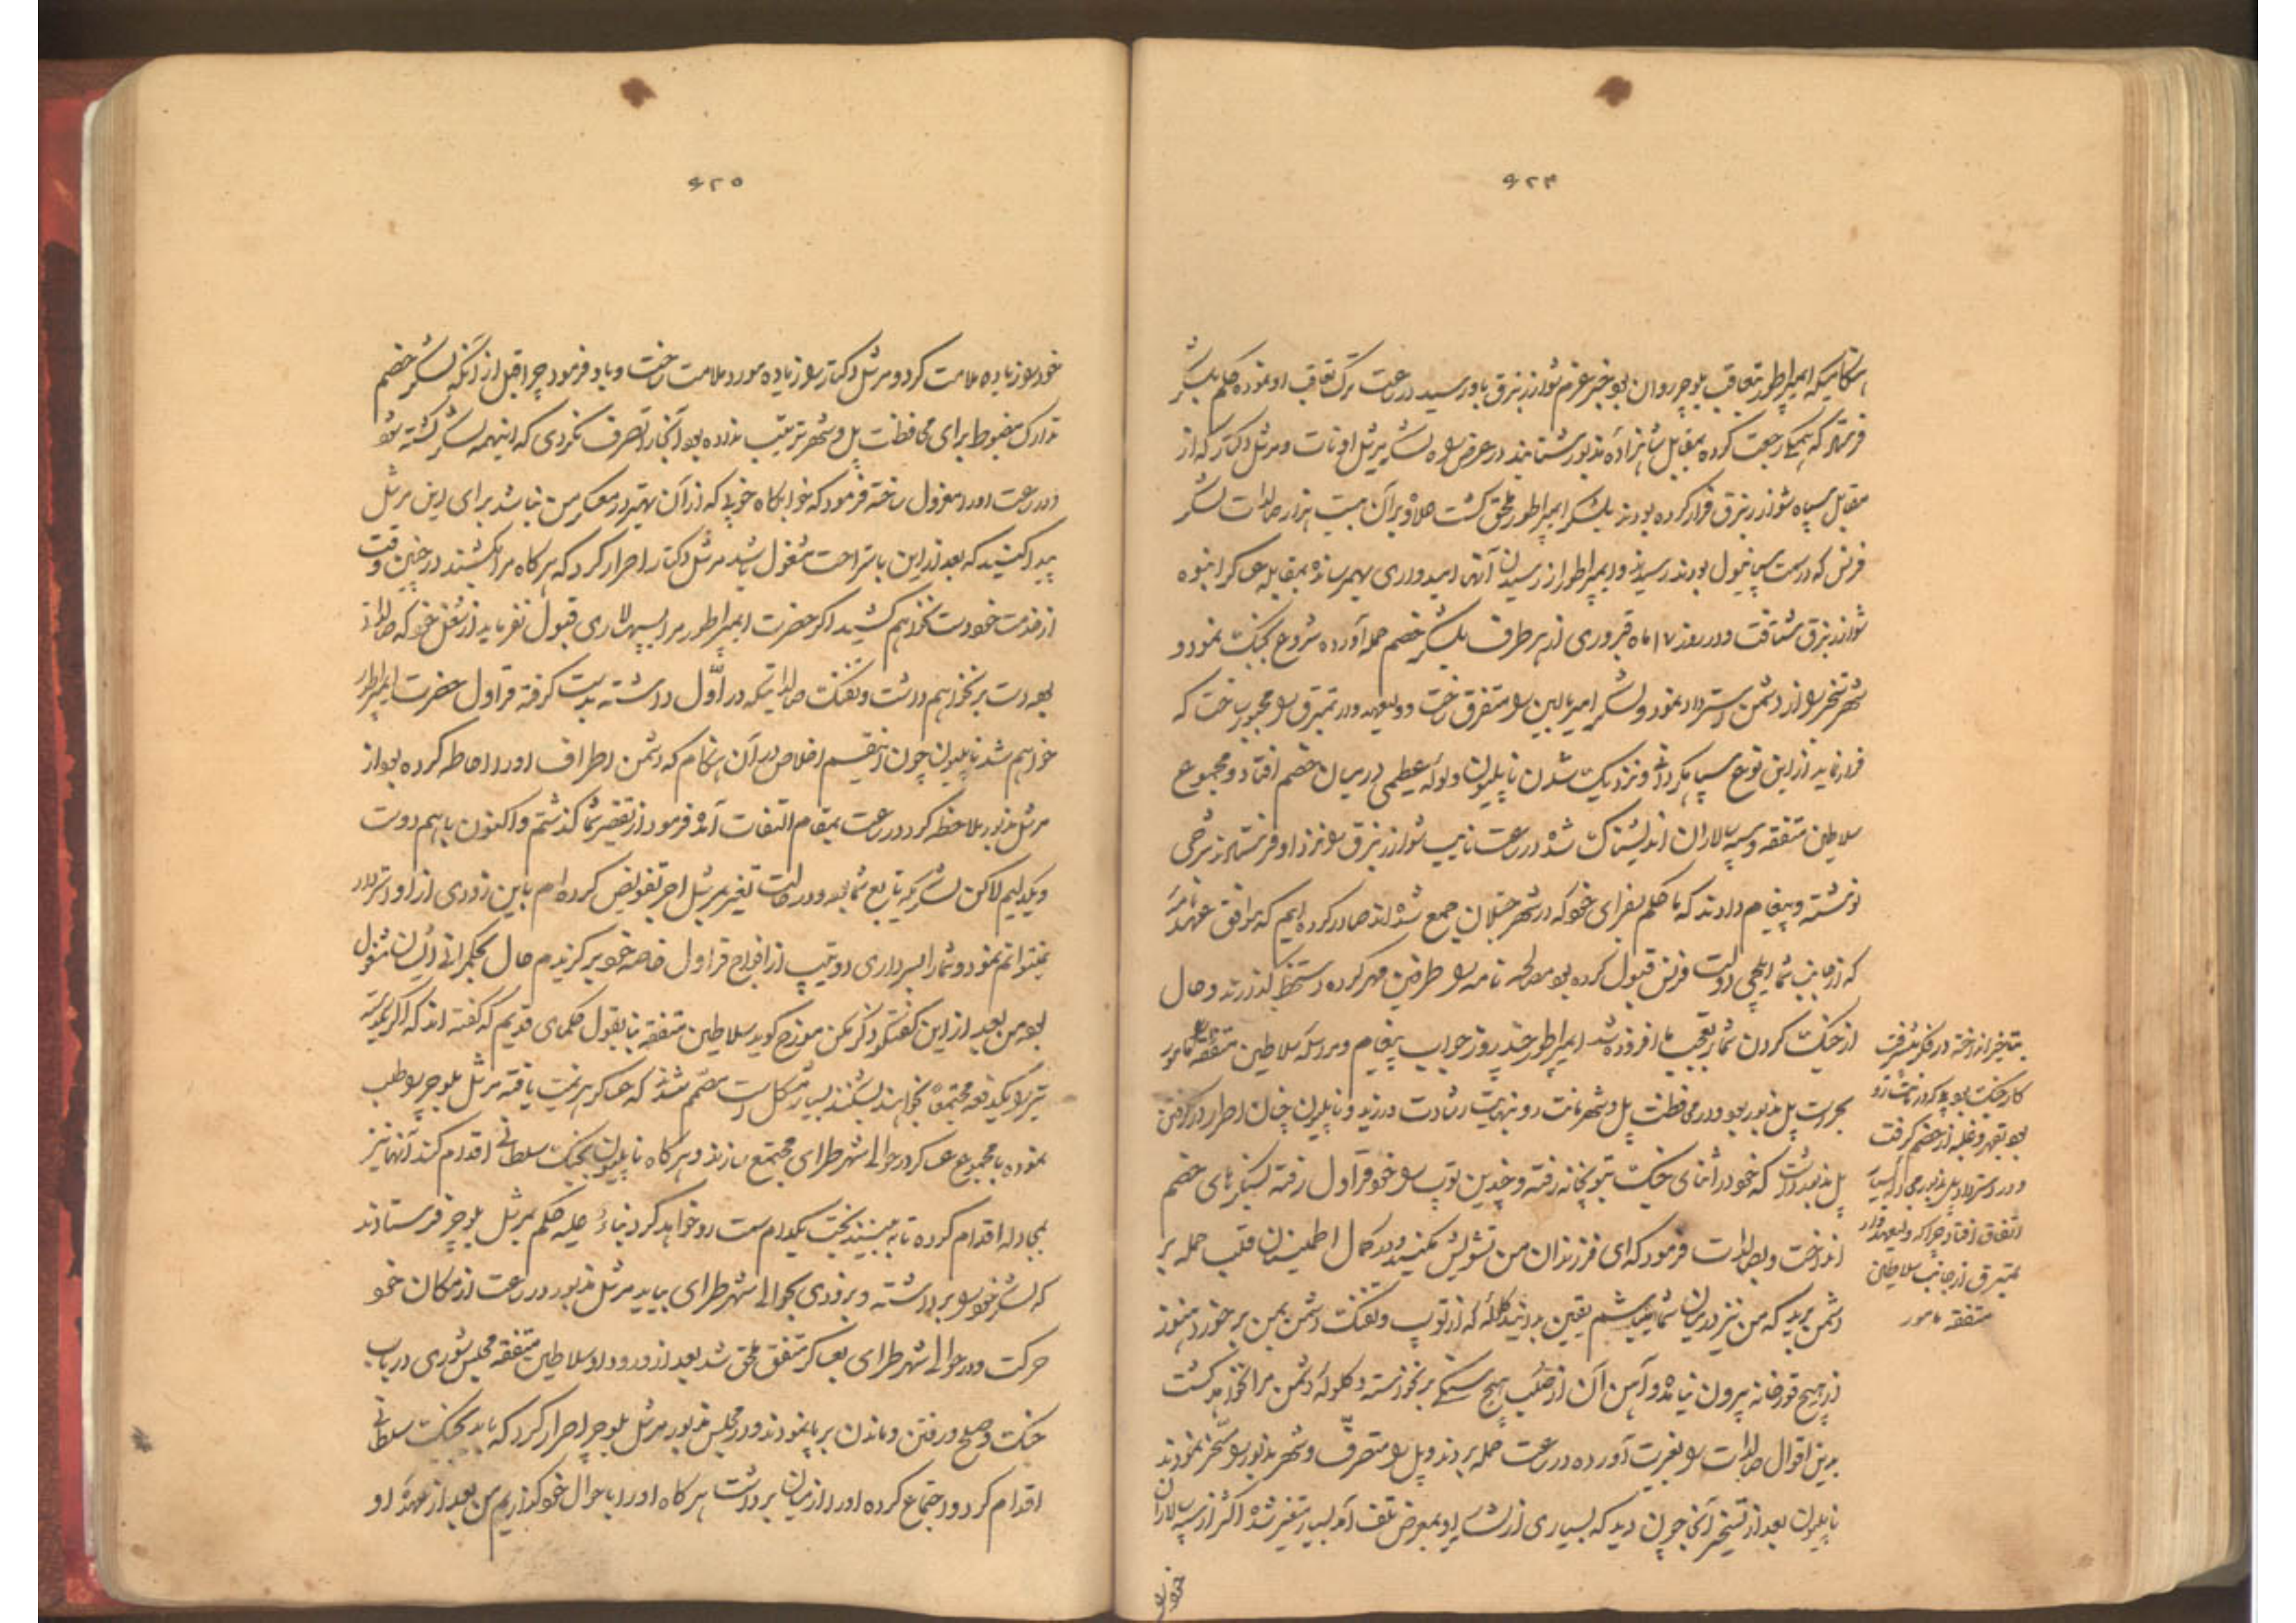 ۶۲۴
هنگامیکه ایمپراطور بتعاقب بلوچر روان بود خبر عزم شوارزنبرق باو رسید در ساعت ترک تعاقب او نموده حکم بلشکر
فرستاد که همگی رجعت کرده بمقابل شاهزاده مذبور شتابند در عرض راه لشکر مرشل اودنات و مرشل دکتار که از
مقابل سپاه شوارزنبرق فرار کرده بودند بلشکر ایمپراطور ملحق گشت علاوه بر آن بیست هزار صالدات لشکر
فرنس که در سمت سپانیول بودند رسیدند و ایمپراطور از رسیدن آنها امیدواری بهمرسانده بمقابله عساکر انبوه
شوارزنبرق شتافت و در روز ۱۷ ماه فبروری از هر طرف بلشکر خصم حمله آورده شروع بجنگ نمود و
شهر را از دشمن استرداد نمود و لشکر امیر را متفرق ساخت و ولیعهد ورتمبرق را مجبور ساخت که
فرار نماید از این نوع سپاهیگردانی و نزدیک شدن ناپلیون ولوله عظیمی در میان خصم افتاد و مجموع
سلاطین متفقه و سپهسالاران اندیشناک شده در ساعت نایب شوارزنبرق را نزد او فرستادند شرحی
نوشته و پیغام دادند که ما حکم بسفرای خود که در شهر جمع شده‌اند صادر کرده‌ایم که موافق عهدنامه
که از جانب شما ایلچی دولت فرنس قبول کرده بود مصالحه نامه را طرفین مهر کرده دستخط گذارند و حال
از جنگ کردن شما تعجب ما افزوده شد ایمپراطور چند روز جواب پیغام و مراسله سلاطین متفقه را
بحراست پل مذبور بود و در محافظت پل و شهر نهایت رشادت ورزید و ناپلیون چنان اصرار در گرفتن
پل مذبور داشت که خود در اثنای جنگ بتوپخانه رفته و چندین توپ را خود قراول رفته بسنگرهای خصم
انداخت و بصالدات فرمود که ای فرزندان من تشویش مکنید و به کمال اطمینان قلب حمله بر
دشمن برید که من نیز در میان شما میباشم یقین بدانید گلوله که از توپ و تفنگ دشمن بمن برخورد هنوز
از هیچ قورخانه بیرون نیامده و آهن آن از صلب هیچ سنگی برنخواسته و گلوله دشمن مرا نخواهد کشت
بدین اقوال صالدات را بغیرت آورده در ساعت حمله بردند و پل را متصرف و شهر مذبور را مسخر نمودند
ناپلیون بعد از تسخیر آنجا چون دید که بسیاری از لشکر او بمعرض تلف آمد بسیار متغیر شده اکثر از سپهسالاران
بتأخیر انداخته در فکر پیشرفت
کار جنگ بود
بود بقهر و غلبه از خصم گرفت
و در استرداد پل مذبور مجادله بسیار
اتفاق افتاد چرا که ولیعهد ور
تمبرق از جانب سلاطین
متفقه مامور
خود را
۶۲۵
خود را زیاده ملامت کرد و مرشل دکتار را زیاده مورد ملامت ساخت و باو فرمود چرا قبل از آنکه لشکر خصم
تدارک مضبوط برای محافظت پل و شهر ترتیب نداده بود آنجا را تصرف نکردی که اینهمه لشکر کشته نشود
در ساعت او را معزول ساخته فرمود که خوابگاه خوبی که از آن بهتر در معسکر من نباشد برای این مرشل
پیدا کنید که بعد از این باستراحت مشغول باشد مرشل دکتار اصرار کرد که هر گاه مرا بکشند در چنین وقت
از خدمت خود دست نخواهم کشید اگر حضرت ایمپراطور مرا بسپهسالاری قبول نفرماید از شغل خود که صالدات
بود دست برنخواهم داشت و تفنگ صالداتیکه در اول داشتم بدست گرفته قراول حضرت ایمپراطور
خواهم شد ناپلیون چون این قسم اخلاص در آن هنگام که دشمن اطراف او را احاطه کرده بود از
مرشل مذبور ملاحظه کرد در ساعت بمقام التفات آمده فرمود از تقصیر شما گذشتم و اکنون با هم دوست
و یکدلیم لاکن لشکریکه تابع شما بود و در حالت تغیر بمرشل اجر تفویض کرده‌ام باین زودی از او استرداد
نمیتوانم نمود و شما را بسرداری دو تیپ از افواج قراول خاصه خود برگزیدم حال بحکمرانی ایشان مشغول
بوده من بعد از این گفتگو ذکر مکن مورخ گوید سلاطین متفقه بنا بقول حکمای قدیم که گفته‌اند که اگر یکدسته
تیر را یکدفعه مجتمعا بخواهند بشکنند بسیار مشکل است مصمم شدند که عساکر هزیمت یافته مرشل بلوچر را طلب
نموده با مجموع عساکر در حوالی شهر طرای مجتمع سازند و هر گاه ناپلیون بجنگ سلطانی اقدام کند آنها نیز
بمجادله اقدام کرده تا به بینند بخت بکدام سمت رو خواهد کرد بناء علیه حکم بمرشل بلوچر فرستادند
که لشکر خود را برداشته و بزودی بحوالی شهر طرای بیاید مرشل مذبور در ساعت از مکان خود
حرکت و در حوالی شهر طرای بعساکر متفق ملحق شد بعد از ورود او سلاطین متفقه مجلس شوری در باب
جنگ و صلح و رفتن و ماندن برپا نمودند و در مجلس مذبور مرشل بلوچر اصرار کرد که باید بجنگ سلطانی
اقدام کرد و اجتماع کرده او را از میان برداشت هر گاه او را باحوال خود گذاریم من بعد از عهده او